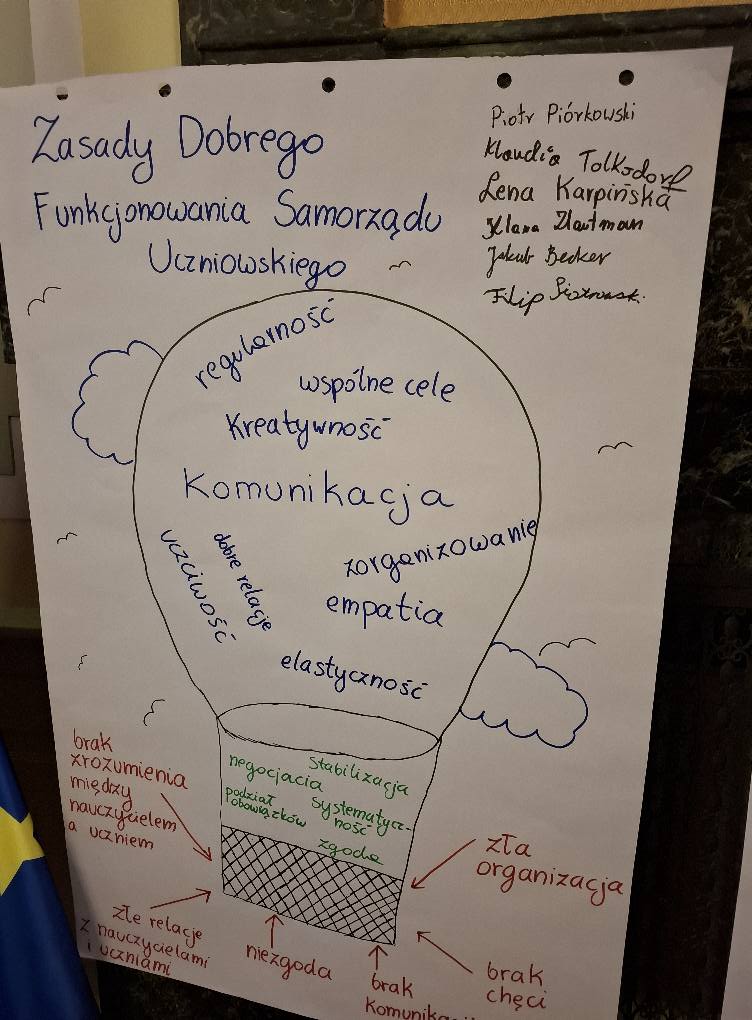 Zasady Dobrego
Funkcjonowania Samorządu
Uczniowskiego
Piotr Piórkowski
Klaudia Tolksdorf
Lena Karpińska
Klara
Jakub Becker
Filip
regularność
wspólne cele
Kreatywność
Komunikacja
zorganizowanie
uczciwość
dobre relacje
empatia
elastyczność
negocjacja
Stabilizacja
podział
obowiązków
systematycz-
ność
zgoda
brak
zrozumienia
między
nauczycielem
a uczniem
złe relacje
z nauczycielami
i uczniami
niezgoda
brak
zła
organizacja
brak
chęci